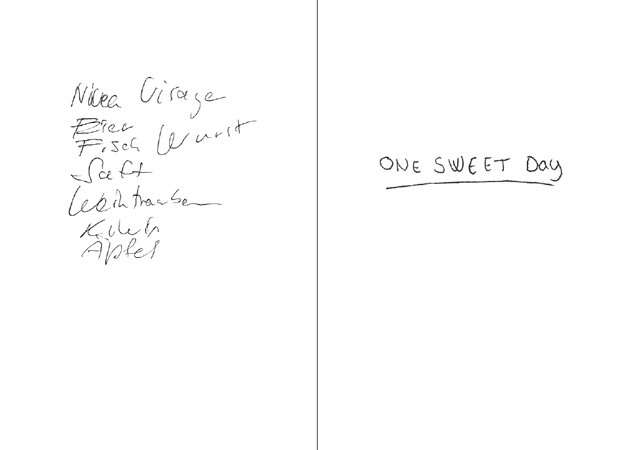 Nivea Visage
Bier
Fisch Wurst
Saft
Weintrauben
Äpfel
ONE SWEET Day